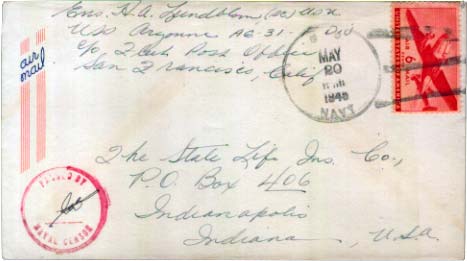 Ens. H.A. Lindblom (SC) USN
USS Argonne AG-31 - Div
c/o Fleet Post Office
San Francisco, Calif
air
mail
MAY
20
1945
NAVY
6¢
The State Life Ins. Co.,
P.O. Box 406
Indianapolis
Indiana, U.S.A.
PASSED BY
NAVAL CENSOR